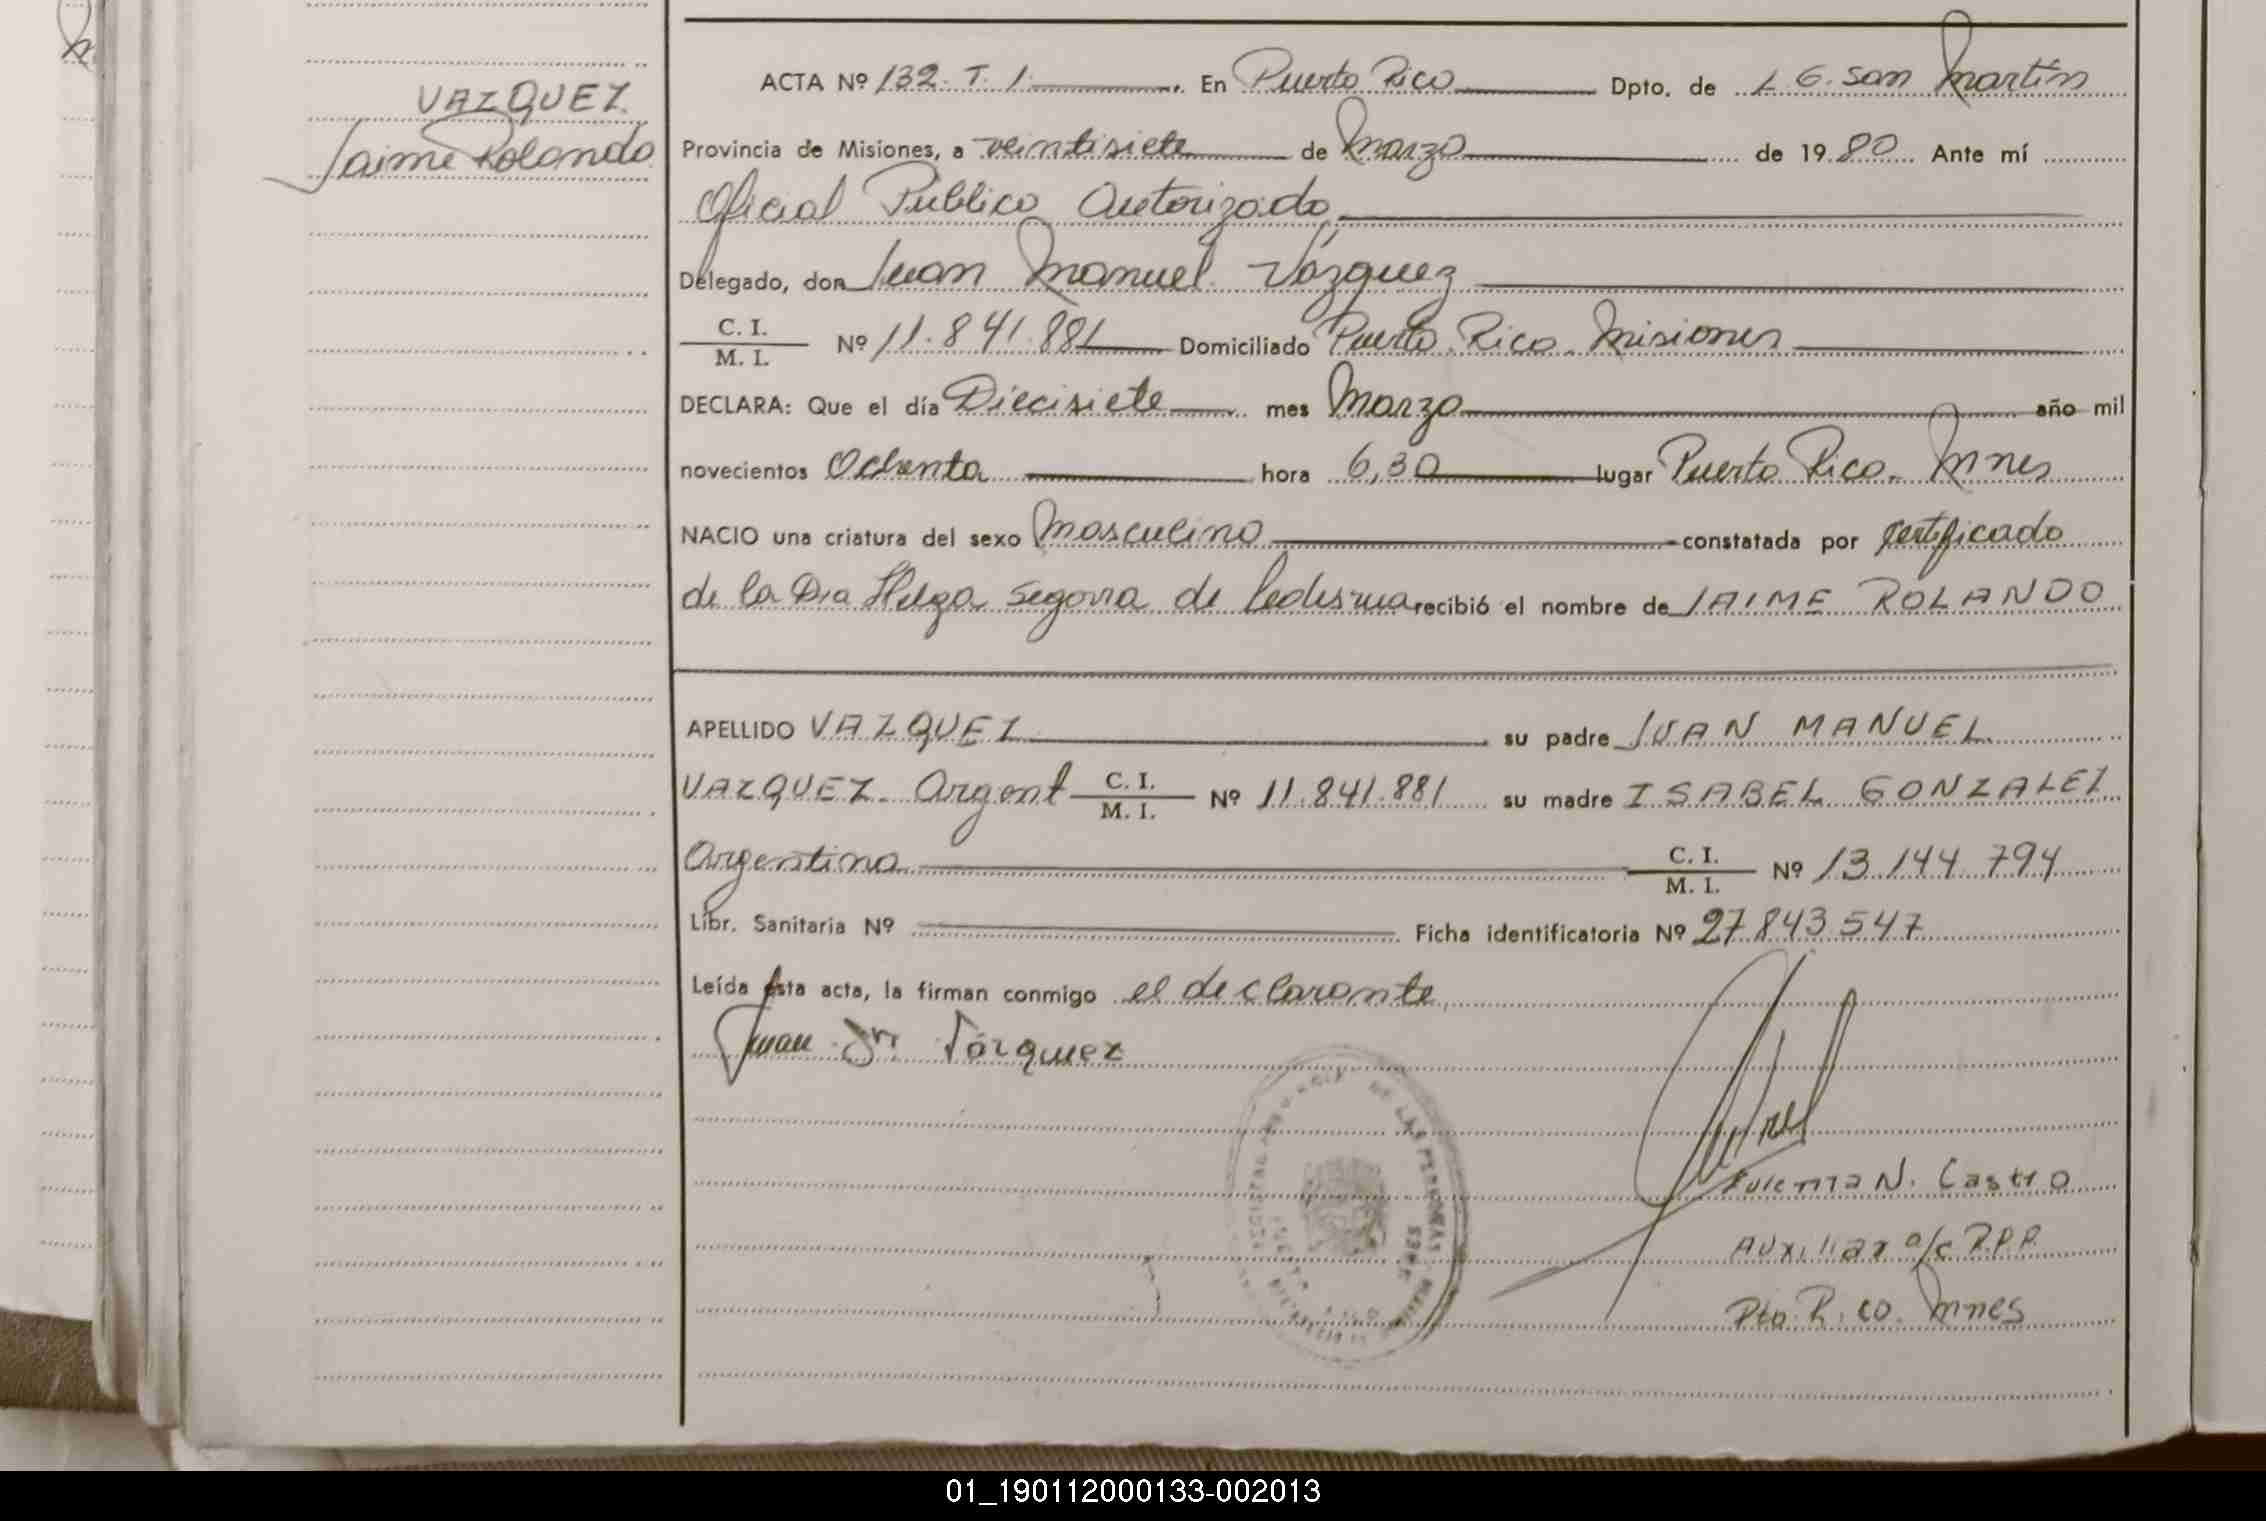 VAZQUEZ
Jaime Rolando
ACTA Nº 132. T. 1. En Puerto Rico Dpto. de L G. San Martín
Provincia de Misiones, a veintisiete de Marzo de 1980 Ante mí
Oficial Público Autorizado
Delegado, don Juan Manuel Vázquez
C. I.
M. I. Nº 11.841.881 Domiciliado Puerto Rico. Misiones
DECLARA: Que el día Diecisiete mes Marzo año mil
novecientos Ochenta hora 6,30 lugar Puerto Rico. Mnes
NACIO una criatura del sexo Masculino constatada por certificado
de la Dra Helga Segovia de Ledesma recibió el nombre de JAIME ROLANDO
APELLIDO VAZQUEZ su padre JUAN MANUEL
VAZQUEZ. Argent C. I. M. I. Nº 11.841.881 su madre ISABEL GONZALEZ
Argentina C. I. M. I. Nº 13.144.794
Libr. Sanitaria Nº Ficha identificatoria Nº 27.843.547
Leída ésta acta, la firman conmigo el declarante
Juan M Vázquez
N. Castro
Auxiliar a/c R.P.P.
Pto. Rico. Mnes
DE LAS PERSONAS
01_190112000133-002013